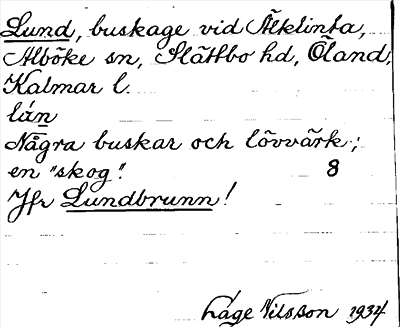 Lund, buskage vid Älklinta,
Alböke sn, Slättbo hd, Öland,
Kalmar l.
lún
Några buskar och lövvärk;
en "skog". 8
Jfr Lundbrunn!
Låge Nilsson 1934